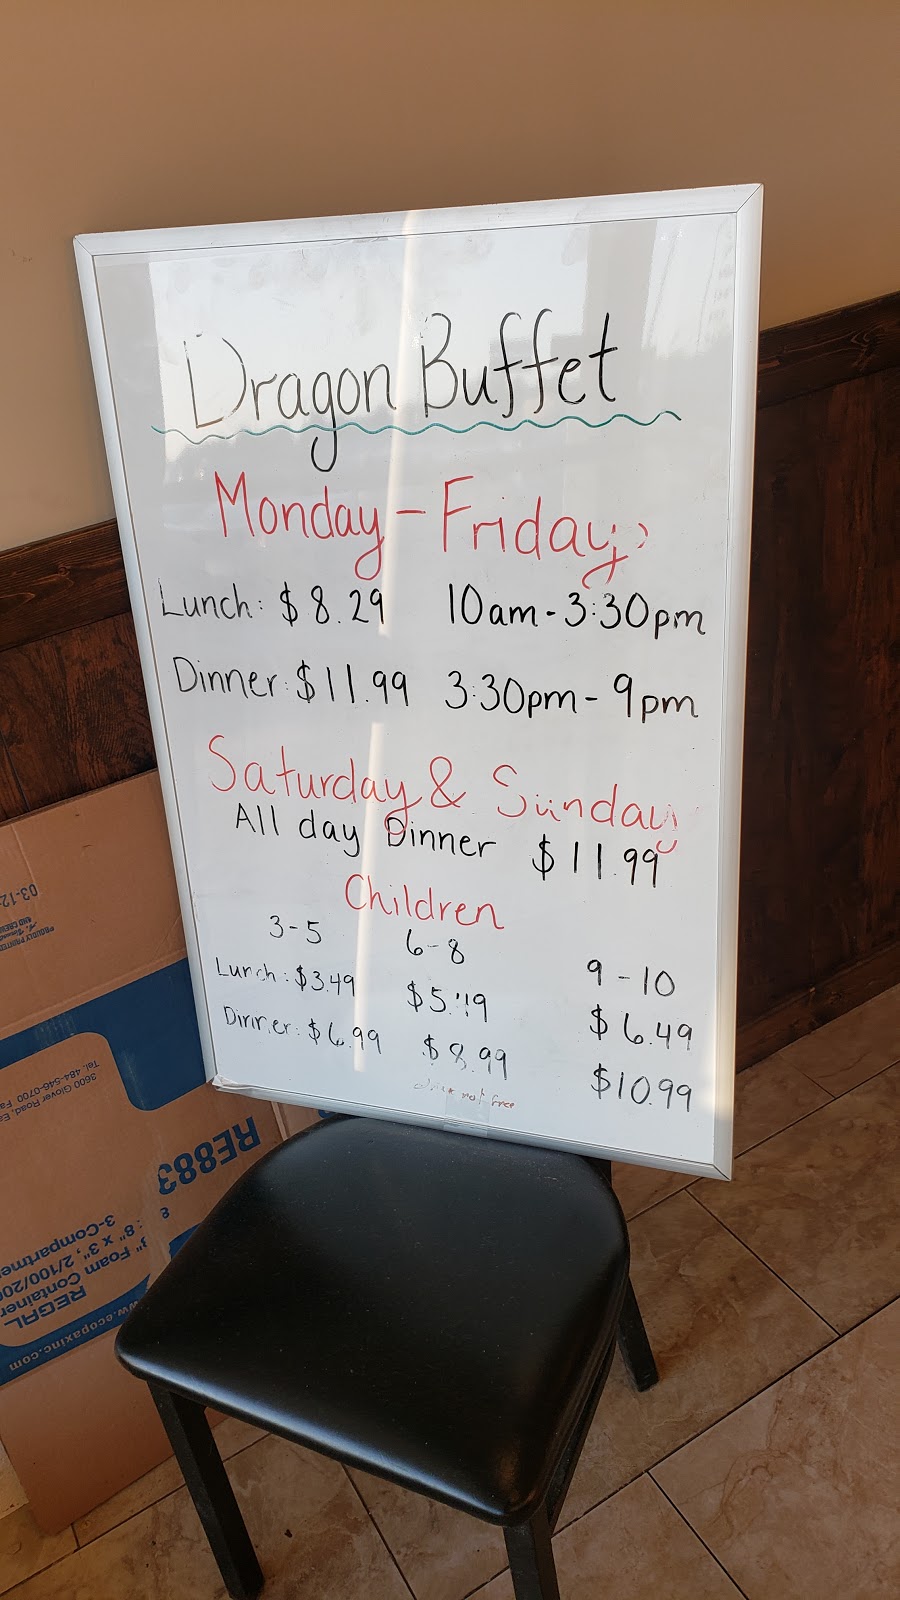 Dragon Buffet
Monday - Friday
Lunch: $8.29 10am - 3:30pm
Dinner: $11.99 3:30pm - 9pm
Saturday & Sunday
All day Dinner $11.99
Children
3-5 6-8 9-10
Lunch: $3.49 $5.49 $6.49
Dinner: $6.99 $8.99 $10.99
drink not free
03-12
PROUDLY PRINTED
AND CREA
3600 Glover Road, Ea
Tel. 484-546-0700 Fa
RE883
8" x 3", 3-Compartme
2/100/200
Foam Container
REGAL
www.ecopaxinc.com